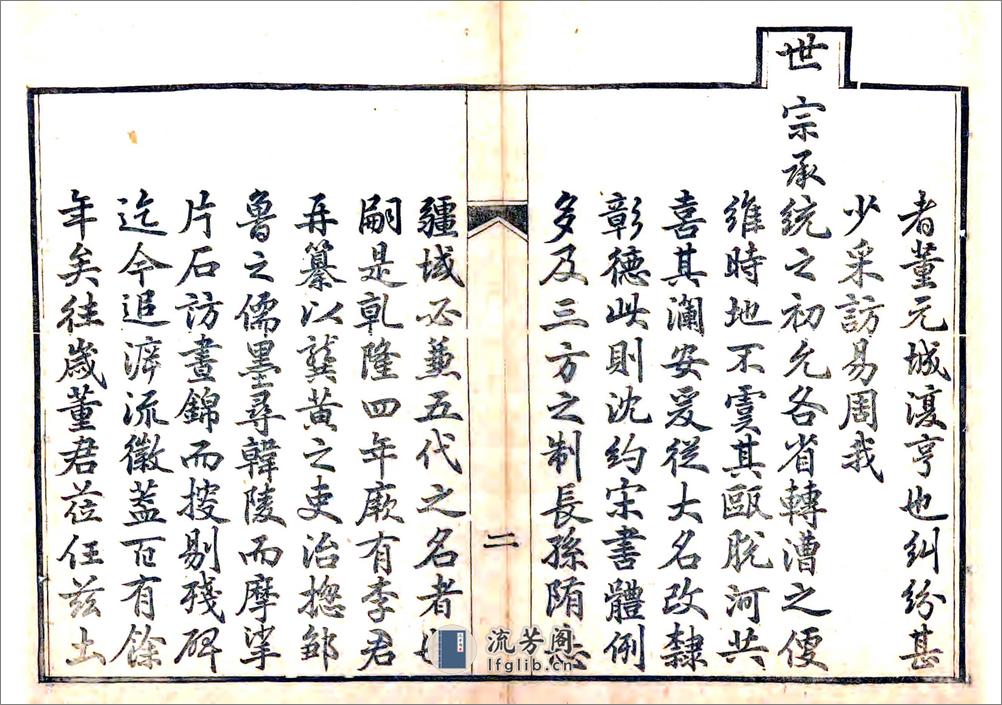 者董元城濩亨也糾紛甚
少采訪易周我
世宗承統之初允各省轉漕之便
維時地不虞其甌脫河共
喜其瀾安爰從大名改隸
彰德此則沈約宋書體例
多及三方之制長孫隋志
二
疆域必蒹五代之名者
嗣是乹隆四年厥有李君
再纂以龔黃之吏治揔鄒
魯之儒墨尋韓陵而摩挲
片石訪晝錦而搜剔殘碑
迄今追泝流徽葢百有餘
年矣往歲董君莅任兹土
流芳阁
lfglib.cn